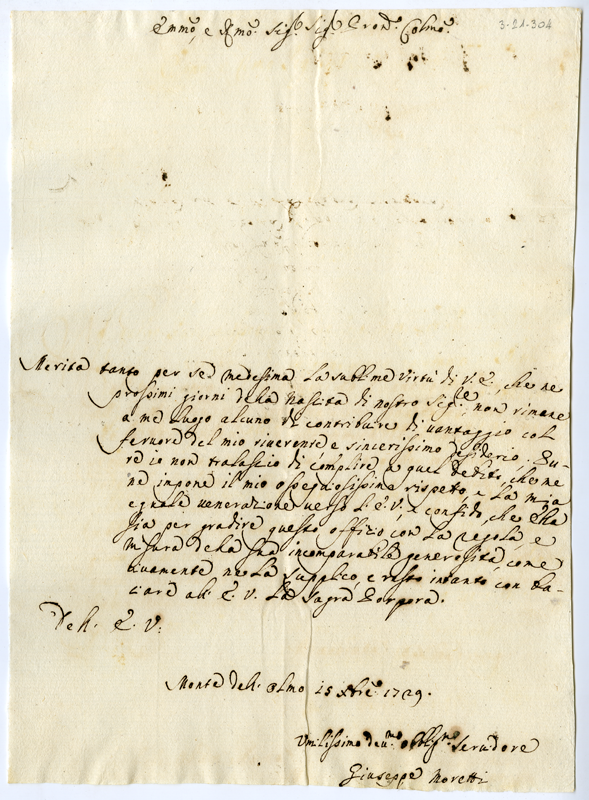 3-21-304
Emmo, e Rmo. Sigr. Sigr. Pron. Colmo.
Merita tanto per se medesima la sublime virtù di V. E., che ne
prossimi giorni della Nascita di nostro Sigre. non rimane
a me luogo alcuno di contribuire di vantaggio col
fervore del mio riverente e sincerissimo desiderio. Pu-
re io non tralascio di complire a quel debito, che ne
ne impone il mio ossequiosissimo rispetto, e la mia
eguale venerazione verso l'E. V., e confido, che Ella
sia per gradire questo offizio con la regola, e
misura della sua incomparabile generosità, come
vivamente ne la supplico, e resto intanto con ba-
ciare all' E. V. la Sagra Porpora.
Dell' E. V.
Monte dell' Olmo 15 Xbre 1729.
Umilissimo devmo. obblgmo. Servidore
Giuseppe Moretti